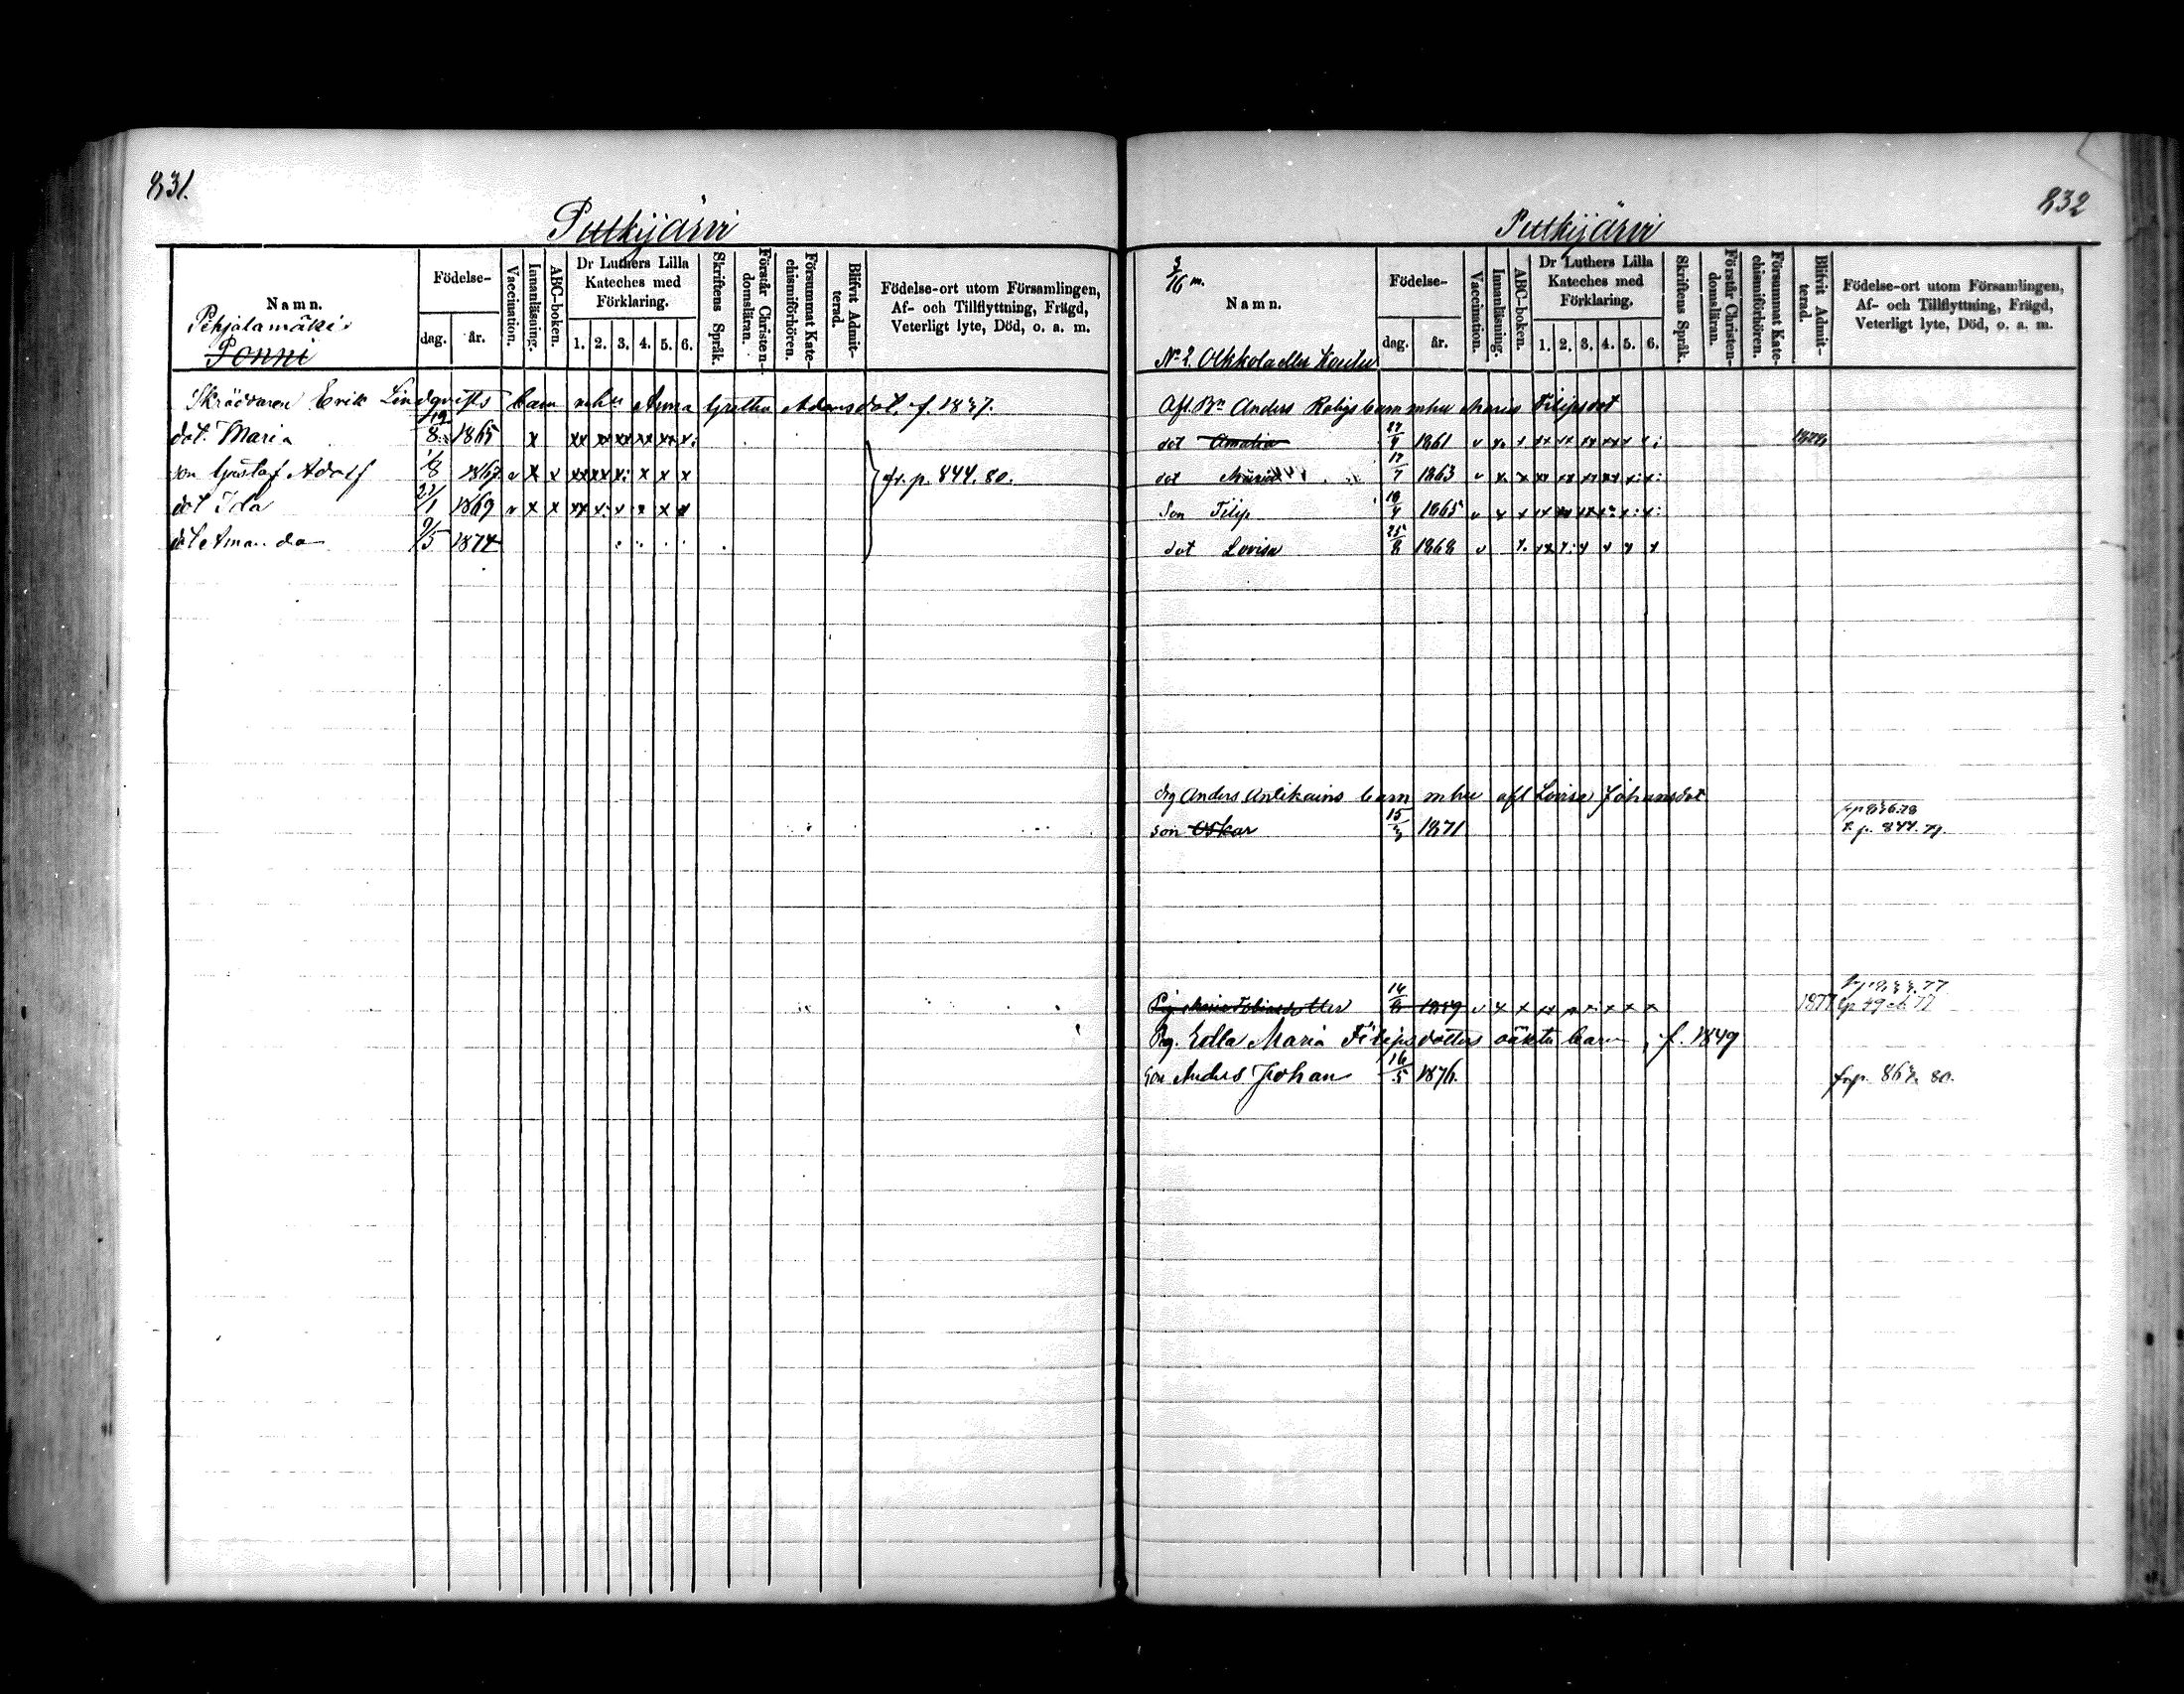 831.
Puttkijärvi
Namn.
Pehjalamäki
Ponni
Födelse-
dag.
år.
Vaccination.
Innanläsning.
ABC-boken.
Dr Luthers Lilla
Kateches med
Förklaring.
1. 2. 3. 4. 5. 6.
Skriftens Språk.
Förstår Christen-
domsläran.
Försummat Kate-
chismiförhören.
Blifvit Admit-
terad.
Födelse-ort utom Församlingen,
Af- och Tillflyttning, Frägd,
Veterligt lyte, Död, o. a. m.
Skräddaren Erik Lindqvists barn Anna Gretha Adamsdot. f. 1837.
dot. Maria 19/8 1865 x xx xx xx xx xx x.
son Gustaf Adolf 1/8 1867 v x v xx xx x: x x x fr. p. 844. 80.
dot Ida 21/1 1869 v x x xx x: v x x x
dot Amanda 9/5 1874
832
Puttkijärvi
3/16 m.
Namn.
No 2. Olkkola eller Koulu
Födelse-
dag.
år.
Vaccination.
Innanläsning.
ABC-boken.
Dr Luthers Lilla
Kateches med
Förklaring.
1. 2. 3. 4. 5. 6.
Skriftens Språk.
Förstår Christen-
domsläran.
Försummat Kate-
chismiförhören.
Blifvit Admit-
terad.
Födelse-ort utom Församlingen,
Af- och Tillflyttning, Frägd,
Veterligt lyte, Död, o. a. m.
Afl. Bn Anders Rabigs barn mhu Maria Filipsdot
dot Amalia 1861
dot Maria 17/7 1863
Son Filip 1865
dot Lovisa 25/8 1868
drg Anders Antikains barn mhu afl Lovisa Johansdot
son Oskar 1871 844. 79.
1859 1877
Pig. Edla Maria Filipsdotters oäkta barn, f. 1849
Son Anders Johan 16/5 1876. 80.